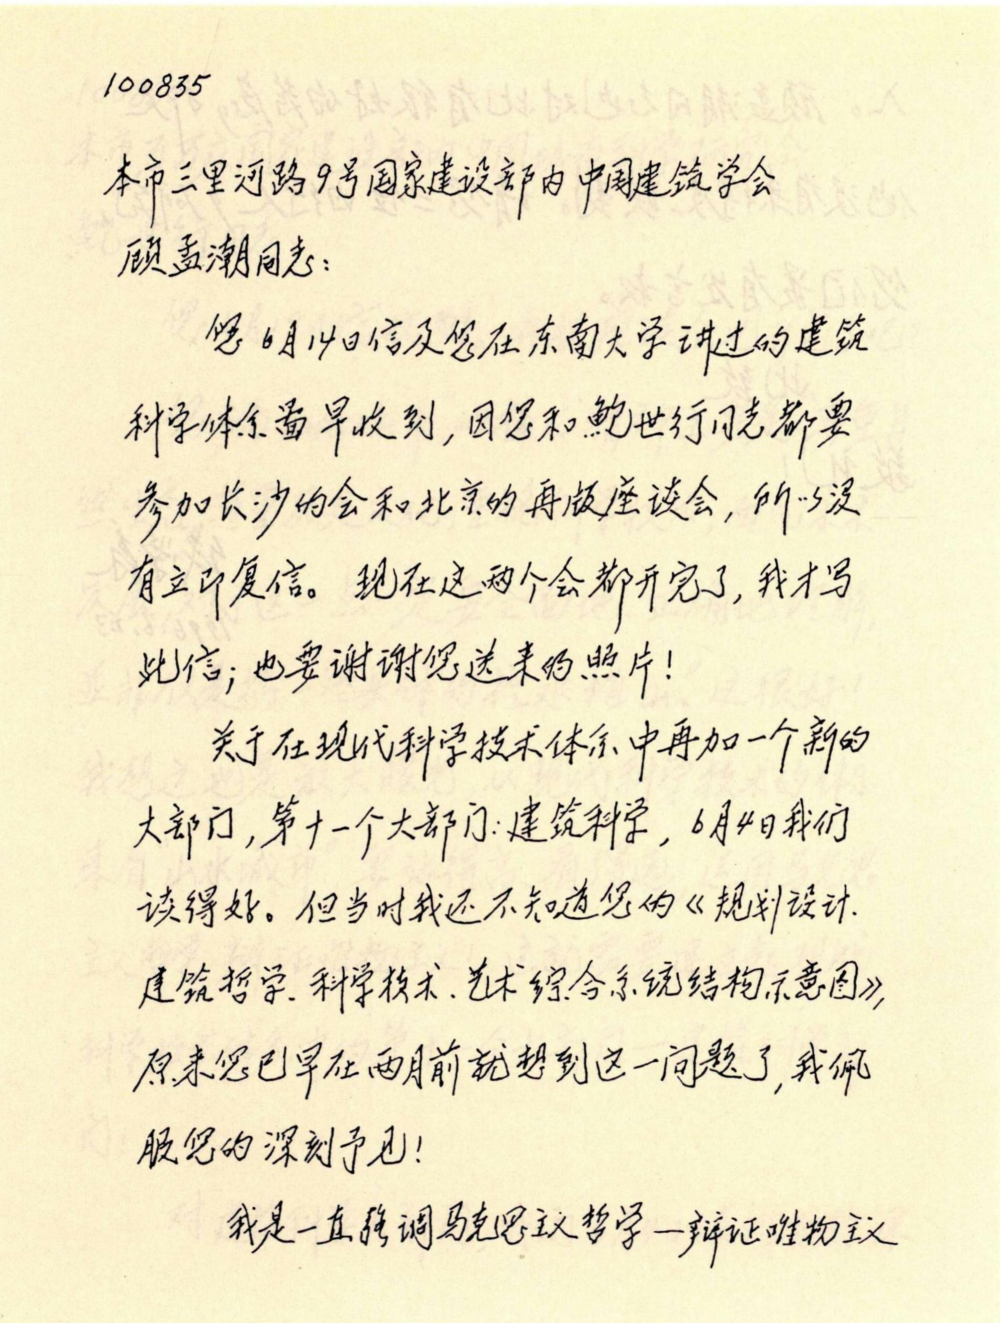 100835
本市三里河路9号国家建设部内中国建筑学会
顾孟潮同志：
您6月14日信及您在东南大学讲过的建筑
科学体系图早收到，因您和鲍世行同志都要
参加长沙的会和北京的再版座谈会，所以没
有立即复信。现在这两个会都开完了，我才写
此信；也要谢谢您送来的照片！
关于在现代科学技术体系中再加一个新的
大部门，第十一个大部门：建筑科学，6月4日我们
谈得好。但当时我还不知道您的《规划设计.
建筑哲学.科学技术.艺术综合系统结构示意图》，
原来您已早在两月前就想到这一问题了，我佩
服您的深刻予见！
我是一直强调马克思主义哲学—辩证唯物主义